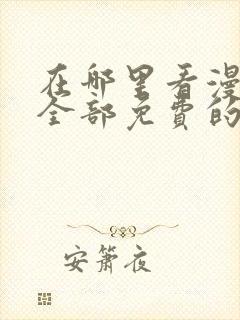 在哪里看漫
全部免费的
安箫夜